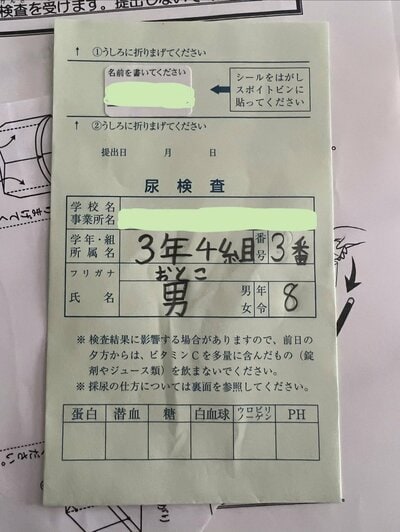 検査を受けます。提出しない
↑ ①うしろに折りまげてください
名前を書いてください
シールをはがし
スポイトビンに
貼ってください
↑ ②うしろに折りまげてください
提出日 月 日
尿検査
学校名
事業所名
学年・組
所属名
3年4組
番号
3番
フリガナ
おとこ
氏名
男
男女
年令
8
※検査結果に影響する場合がありますので、前日の
夕方からは、ビタミンCを多量に含んだもの(錠
剤やジュース類)を飲まないでください。
※採尿の仕方については裏面を参照してください。
蛋白 潜血 糖 白血球 ウロビリノーゲン PH